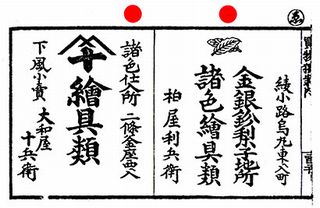 ゑ
綾小路烏丸東入町
金銀鈖梨子地所
諸色繪具類
柏屋利兵衛
諸色仕入所 二條金座西入
十 繪具類
下風小賣 大和屋十兵衛